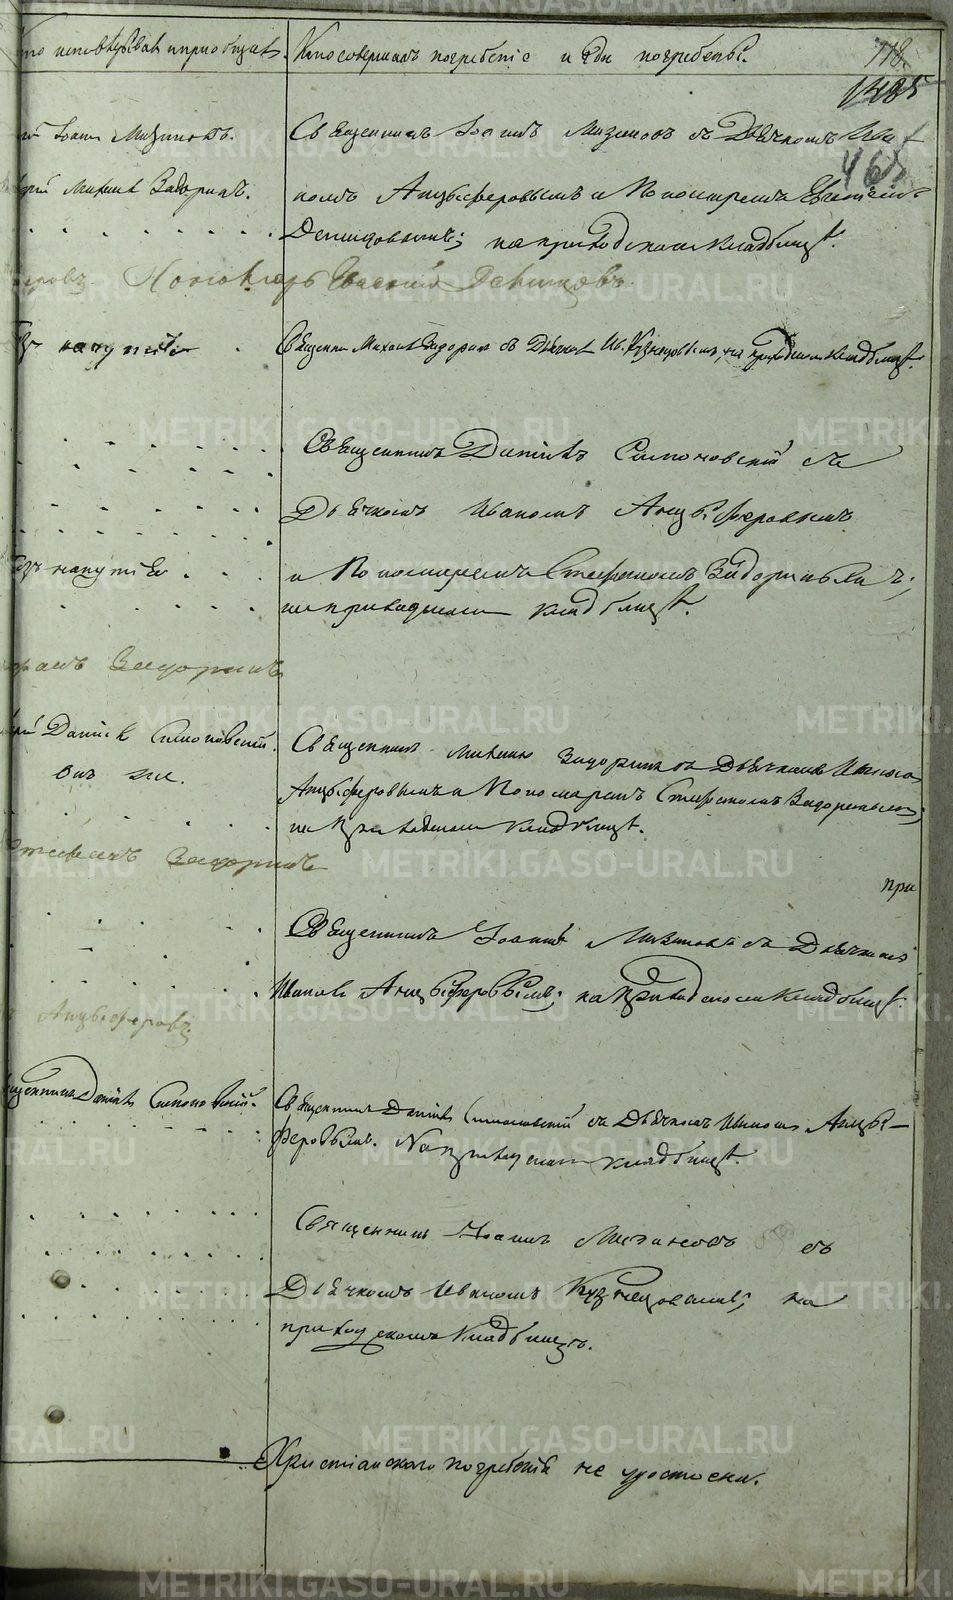 то исповѣдывалъ и пріобщалъ. Кто совершалъ погребеніе и гдѣ погребены.
718.
1485
465
Іоаннъ Мизиновъ. Священникъ Іоаннъ Мизиновъ съ Дьячкомъ Ива
Михаилъ Задоринъ. номъ Анцыферовымъ и Пономаремъ Евгеніемъ
Демидовымъ; на приходскомъ кладбищѣ.
Пономарь
напутія Священникъ Михаилъ Задоринъ съ Дьячкомъ Ив. Кузнецовымъ, на приходскомъ кладбищѣ.
Священникъ Даніилъ Симоновскій съ
Дьячкомъ Иваномъ Анцыферовымъ
напутія и Пономаремъ Стефаномъ Задоринымъ;
на приходскомъ кладбищѣ.
Задоринъ
Даніилъ Симоновскій. Священникъ Михаилъ Задоринъ съ Дьячкомъ Иваномъ
онъ же. Анцыферовымъ и Пономаремъ Стефаномъ Задоринымъ;
на приходскомъ кладбищѣ.
Стефанъ Задоринъ
при
Священникъ Іоаннъ Мизиновъ съ Дьячкомъ
Иваномъ Анцыферовымъ; на приходскомъ кладбищѣ.
Анцыферовъ
Даніилъ Симоновскій. Священникъ Даніилъ Симоновскій съ Дьячкомъ Иваномъ Анцы-
феровымъ. На приходскомъ кладбищѣ.
Священникъ Іоаннъ Мизиновъ съ
Дьячкомъ Иваномъ Кузнецовымъ; на
приходскомъ кладбищѣ.
Христіанскаго погребенія не удостоены.
METRIKI.GASO-URAL.RU